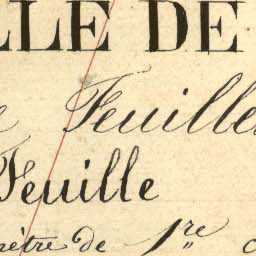 LLE DE
e Feuilles
Feuille
mètre de 1re